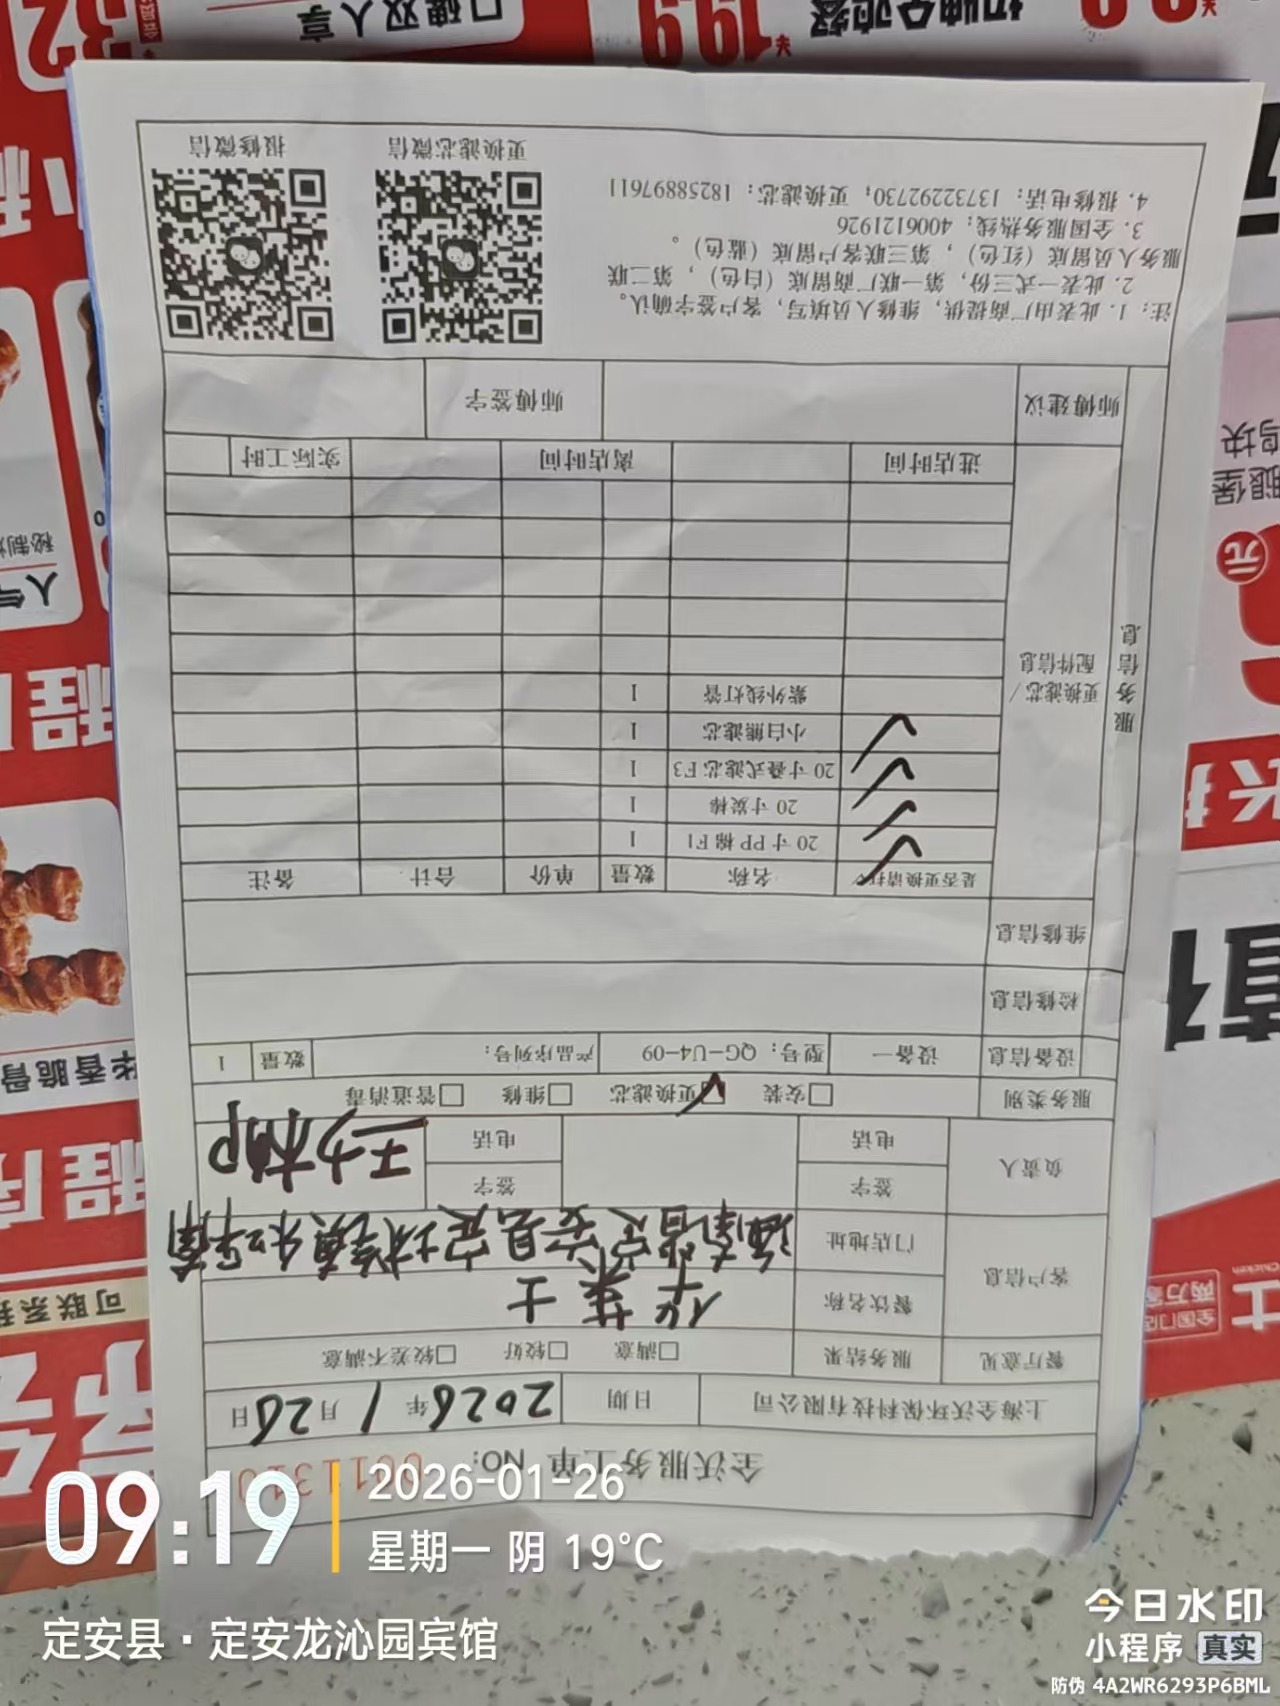 全沃服务工单 NO:
上海全沃环保科技有限公司 日期 2026年1月26日
餐厅意见 服务结果 □满意 □较好 □较差不满意
客户信息 餐饮名称 华莱士
门店地址 海南省定安县定城镇
负责人 签字 签字
电话 电话
服务类别 □安装 ☑更换滤芯 □维修 □管道消毒
设备信息 设备一 型号: QG-U4-09 产品序列号: 数量 1
检修信息
维修信息
服务信息
更换滤芯/配件信息
是否更换请打√ 名称 数量 单价 合计 备注
√ 20寸PP棉F1 1
√ 20寸炭棒 1
√ 20寸叠式滤芯F3 1
√ 小白熊滤芯 1
紫外线灯管 1
进店时间 离店时间 实际工时
师傅建议 师傅签字
注: 1. 此表由厂商提供, 维修人员填写, 客户签字确认。
2. 此表一式三份, 第一联厂商留底(白色), 第二联
服务人员留底(红色), 第三联客户留底(蓝色)。
3. 全国服务热线: 4006121926
4. 报修电话: 13732292730; 更换滤芯: 18258897611
更换滤芯微信 报修微信
09:19
2026-01-26
星期一 阴 19°C
定安县·定安龙沁园宾馆
今日水印
小程序 真实
防伪 4A2WR6293P6BML